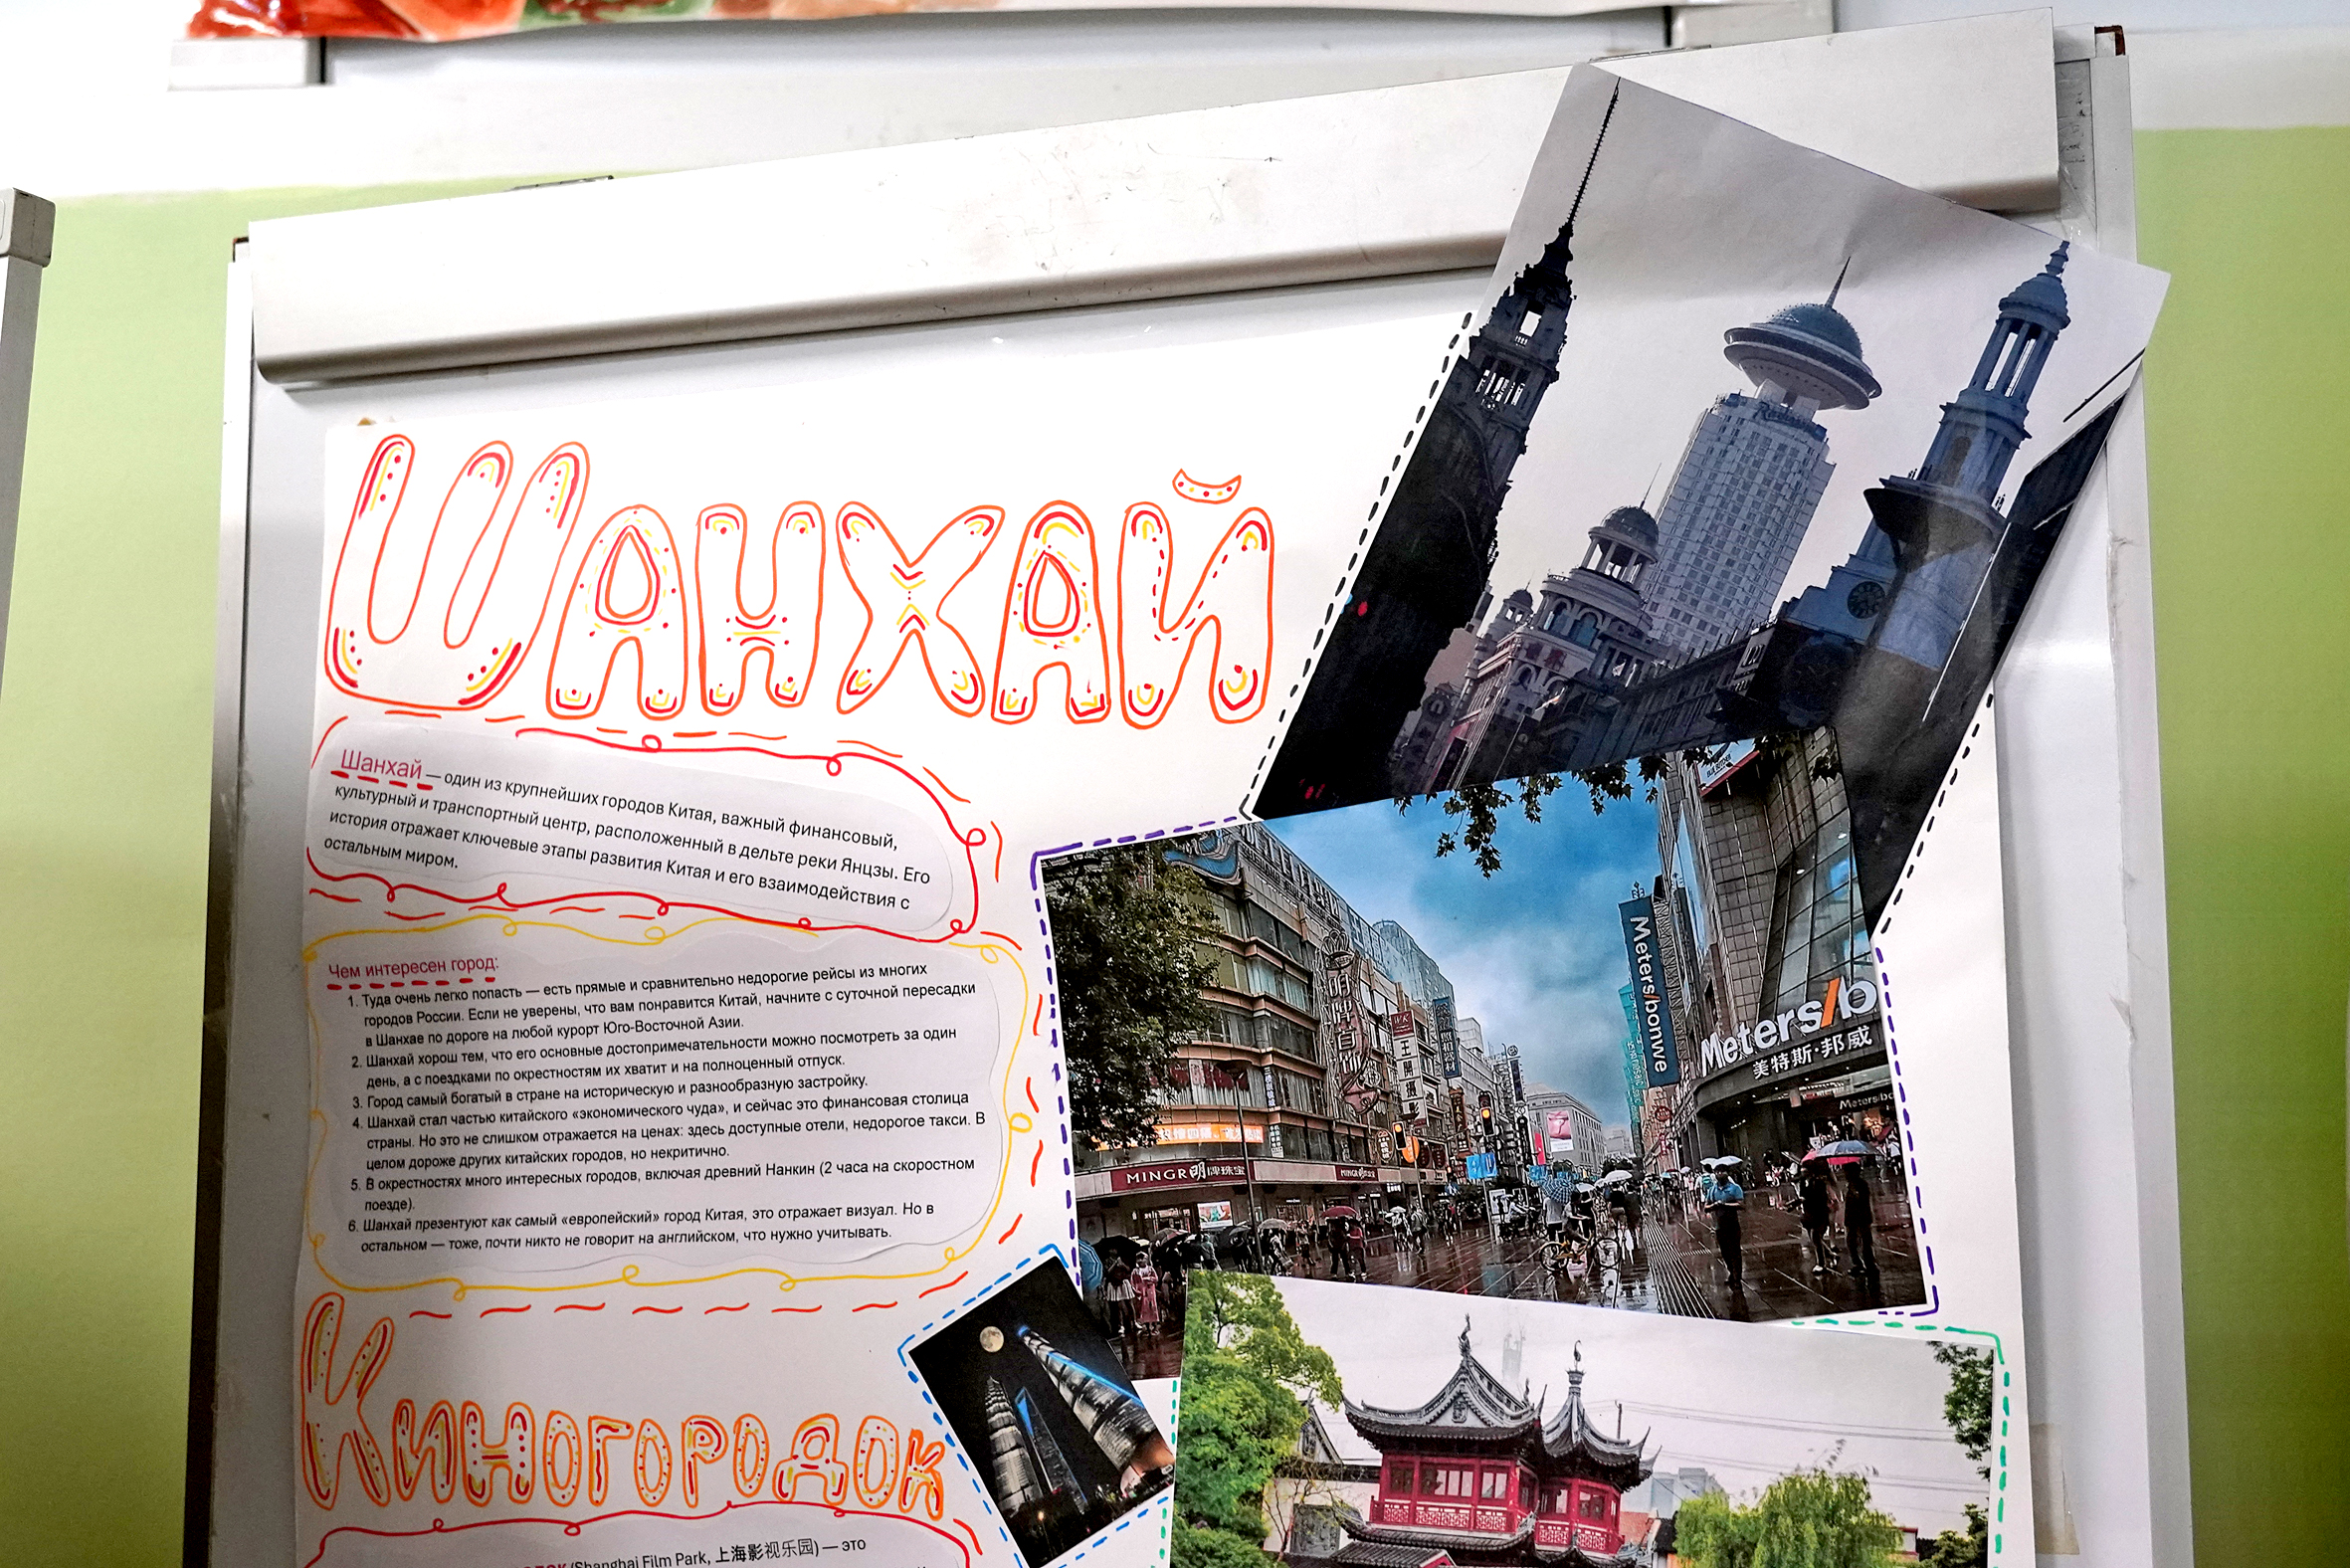 ШАНХАЙ
Шанхай — один из крупнейших городов Китая, важный финансовый,
культурный и транспортный центр, расположенный в дельте реки Янцзы. Его
история отражает ключевые этапы развития Китая и его взаимодействия с
остальным миром.
Чем интересен город:
1. Туда очень легко попасть — есть прямые и сравнительно недорогие рейсы из многих
городов России. Если не уверены, что вам понравится Китай, начните с суточной пересадки
в Шанхае по дороге на любой курорт Юго-Восточной Азии.
2. Шанхай хорош тем, что его основные достопримечательности можно посмотреть за один
день, а с поездками по окрестностям их хватит и на полноценный отпуск.
3. Город самый богатый в стране на историческую и разнообразную застройку.
4. Шанхай стал частью китайского «экономического чуда», и сейчас это финансовая столица
страны. Но это не слишком отражается на ценах: здесь доступные отели, недорогое такси. В
целом дороже других китайских городов, но некритично.
5. В окрестностях много интересных городов, включая древний Нанкин (2 часа на скоростном
поезде).
6. Шанхай презентуют как самый «европейский» город Китая, это отражает визуал. Но в
остальном — тоже, почти никто не говорит на английском, что нужно учитывать.
Киногородок
(Shanghai Film Park, 上海影视乐园) — это
Radisson
Meters/bonwe
Meters/b
美特斯·邦威
Meters/bo
MINGR 明牌珠宝